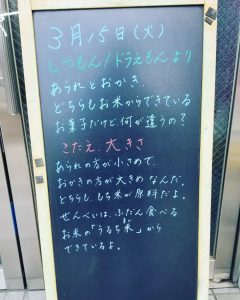 3月15日(火)
しつもん!ドラえもんより
あられとおかき、
どちらもお米からできている
お菓子だけど、何が違うの?
こたえ、大きさ
あられの方が小さめで、
おかきの方が大きめなんだ。
どちらも、もち米が原料だよ。
せんべいは、ふだん食べる
お米の「うるち米」から
できているよ。